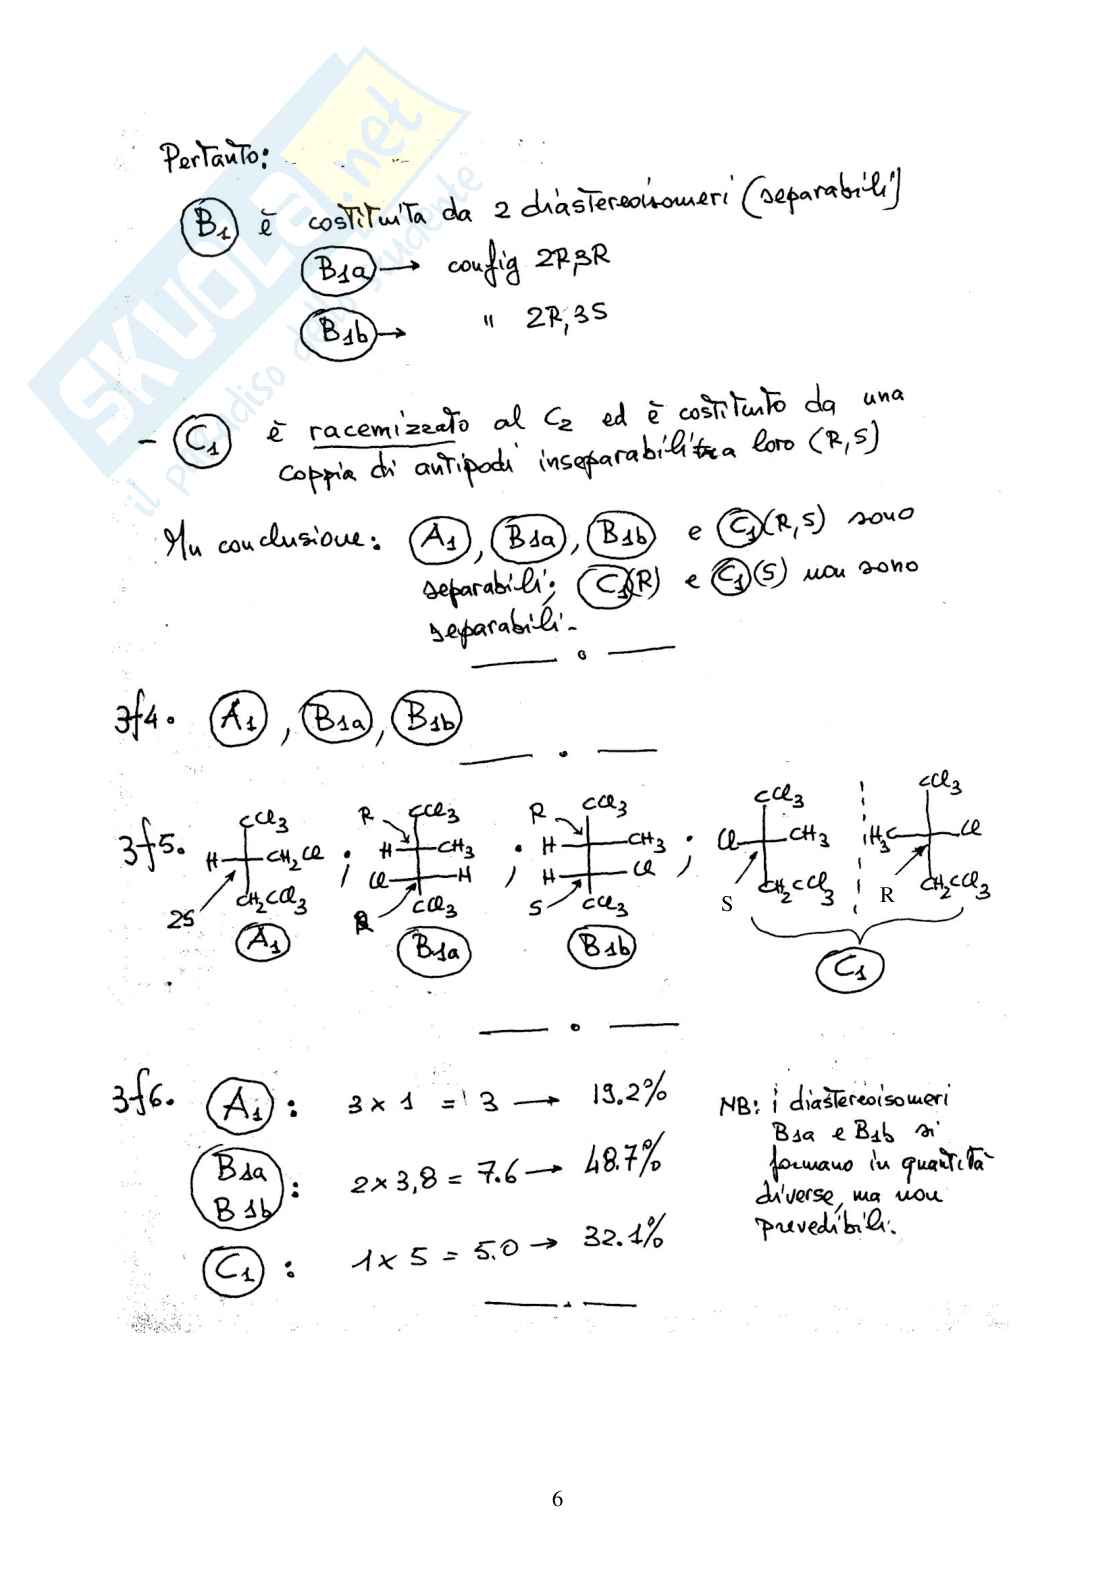 SKUOLA.net
il paradiso dello studente
Pertanto:
B1 è costituita da 2 diastereoisomeri (separabili)
B1a → config 2R,3R
B1b → " 2R,3S
- C1 è racemizzato al C2 ed è costituito da una
coppia di antipodi inseparabili tra loro (R,S)
In conclusione: A1, B1a, B1b e C1(R,S) sono
separabili; C1(R) e C1(S) non sono
separabili.
3f4. A1, B1a, B1b
3f5.
CCl3
H CH2Cl
CH2CCl3
2S
A1
;
R
CCl3
H CH3
Cl H
CCl3
B1a
;
R
CCl3
H CH3
H Cl
S
CCl3
B1b
;
CCl3
Cl CH3
CH2CCl3
S
CCl3
H3C Cl
CH2CCl3
R
C1
3f6. A1: 3 x 1 = 3 → 19.2%
B1a
B1b : 2 x 3,8 = 7.6 → 48.7%
C1 : 1 x 5 = 5.0 → 32.1%
NB: i diastereoisomeri
B1a e B1b si
formano in quantità
diverse, ma non
prevedibili.
6